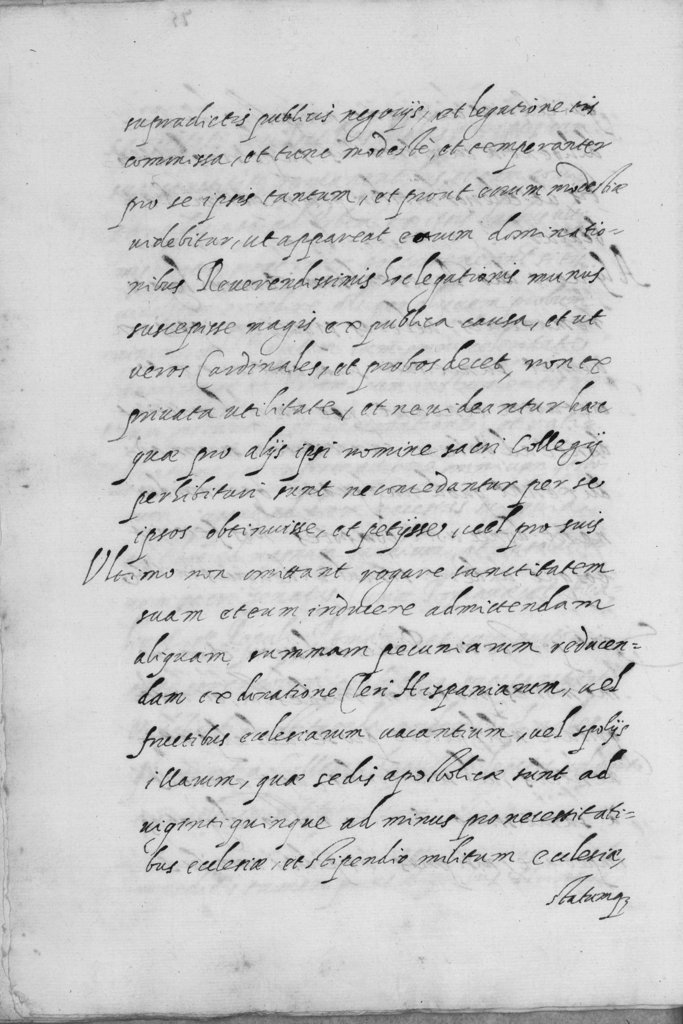 supradictis publicis negotijs, et legatione eis
commissa, et tunc modeste, et temperanter
pro se ipsis tantum, et prout eorum modestiæ
uidebitur, ut appareat eorum dominatio=
nibus Reuerendissimis legationis munus
suscepisse magis ex publica causa, et ut
veros Cardinales, et probos decet, non ex
priuata utilitate, et ne uideantur hæc
quæ pro alijs ipsi nomine sacri Collegij
perhibituri sunt ne concedantur per se
ipsos obtinuisse, et petijsse, uel pro suis
Ultimo non omittant rogare sanctitatem
suam et eum inducere admittendam
aliquam summam pecuniarum reducen=
dam ex donatione Cleri Hispaniarum, uel
fructibus ecclesiarum uacantium, uel spolijs
illarum, quæ sedis apostolicæ sunt ad
uigintiquinque ad minus pro necessitati=
bus ecclesiæ, et stipendio militum ecclesiæ,
statumq;